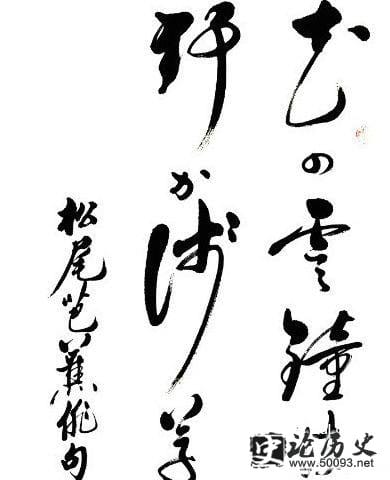 花の雲鐘
野か浅草
松尾芭蕉俳句
论历史
www.50093.net